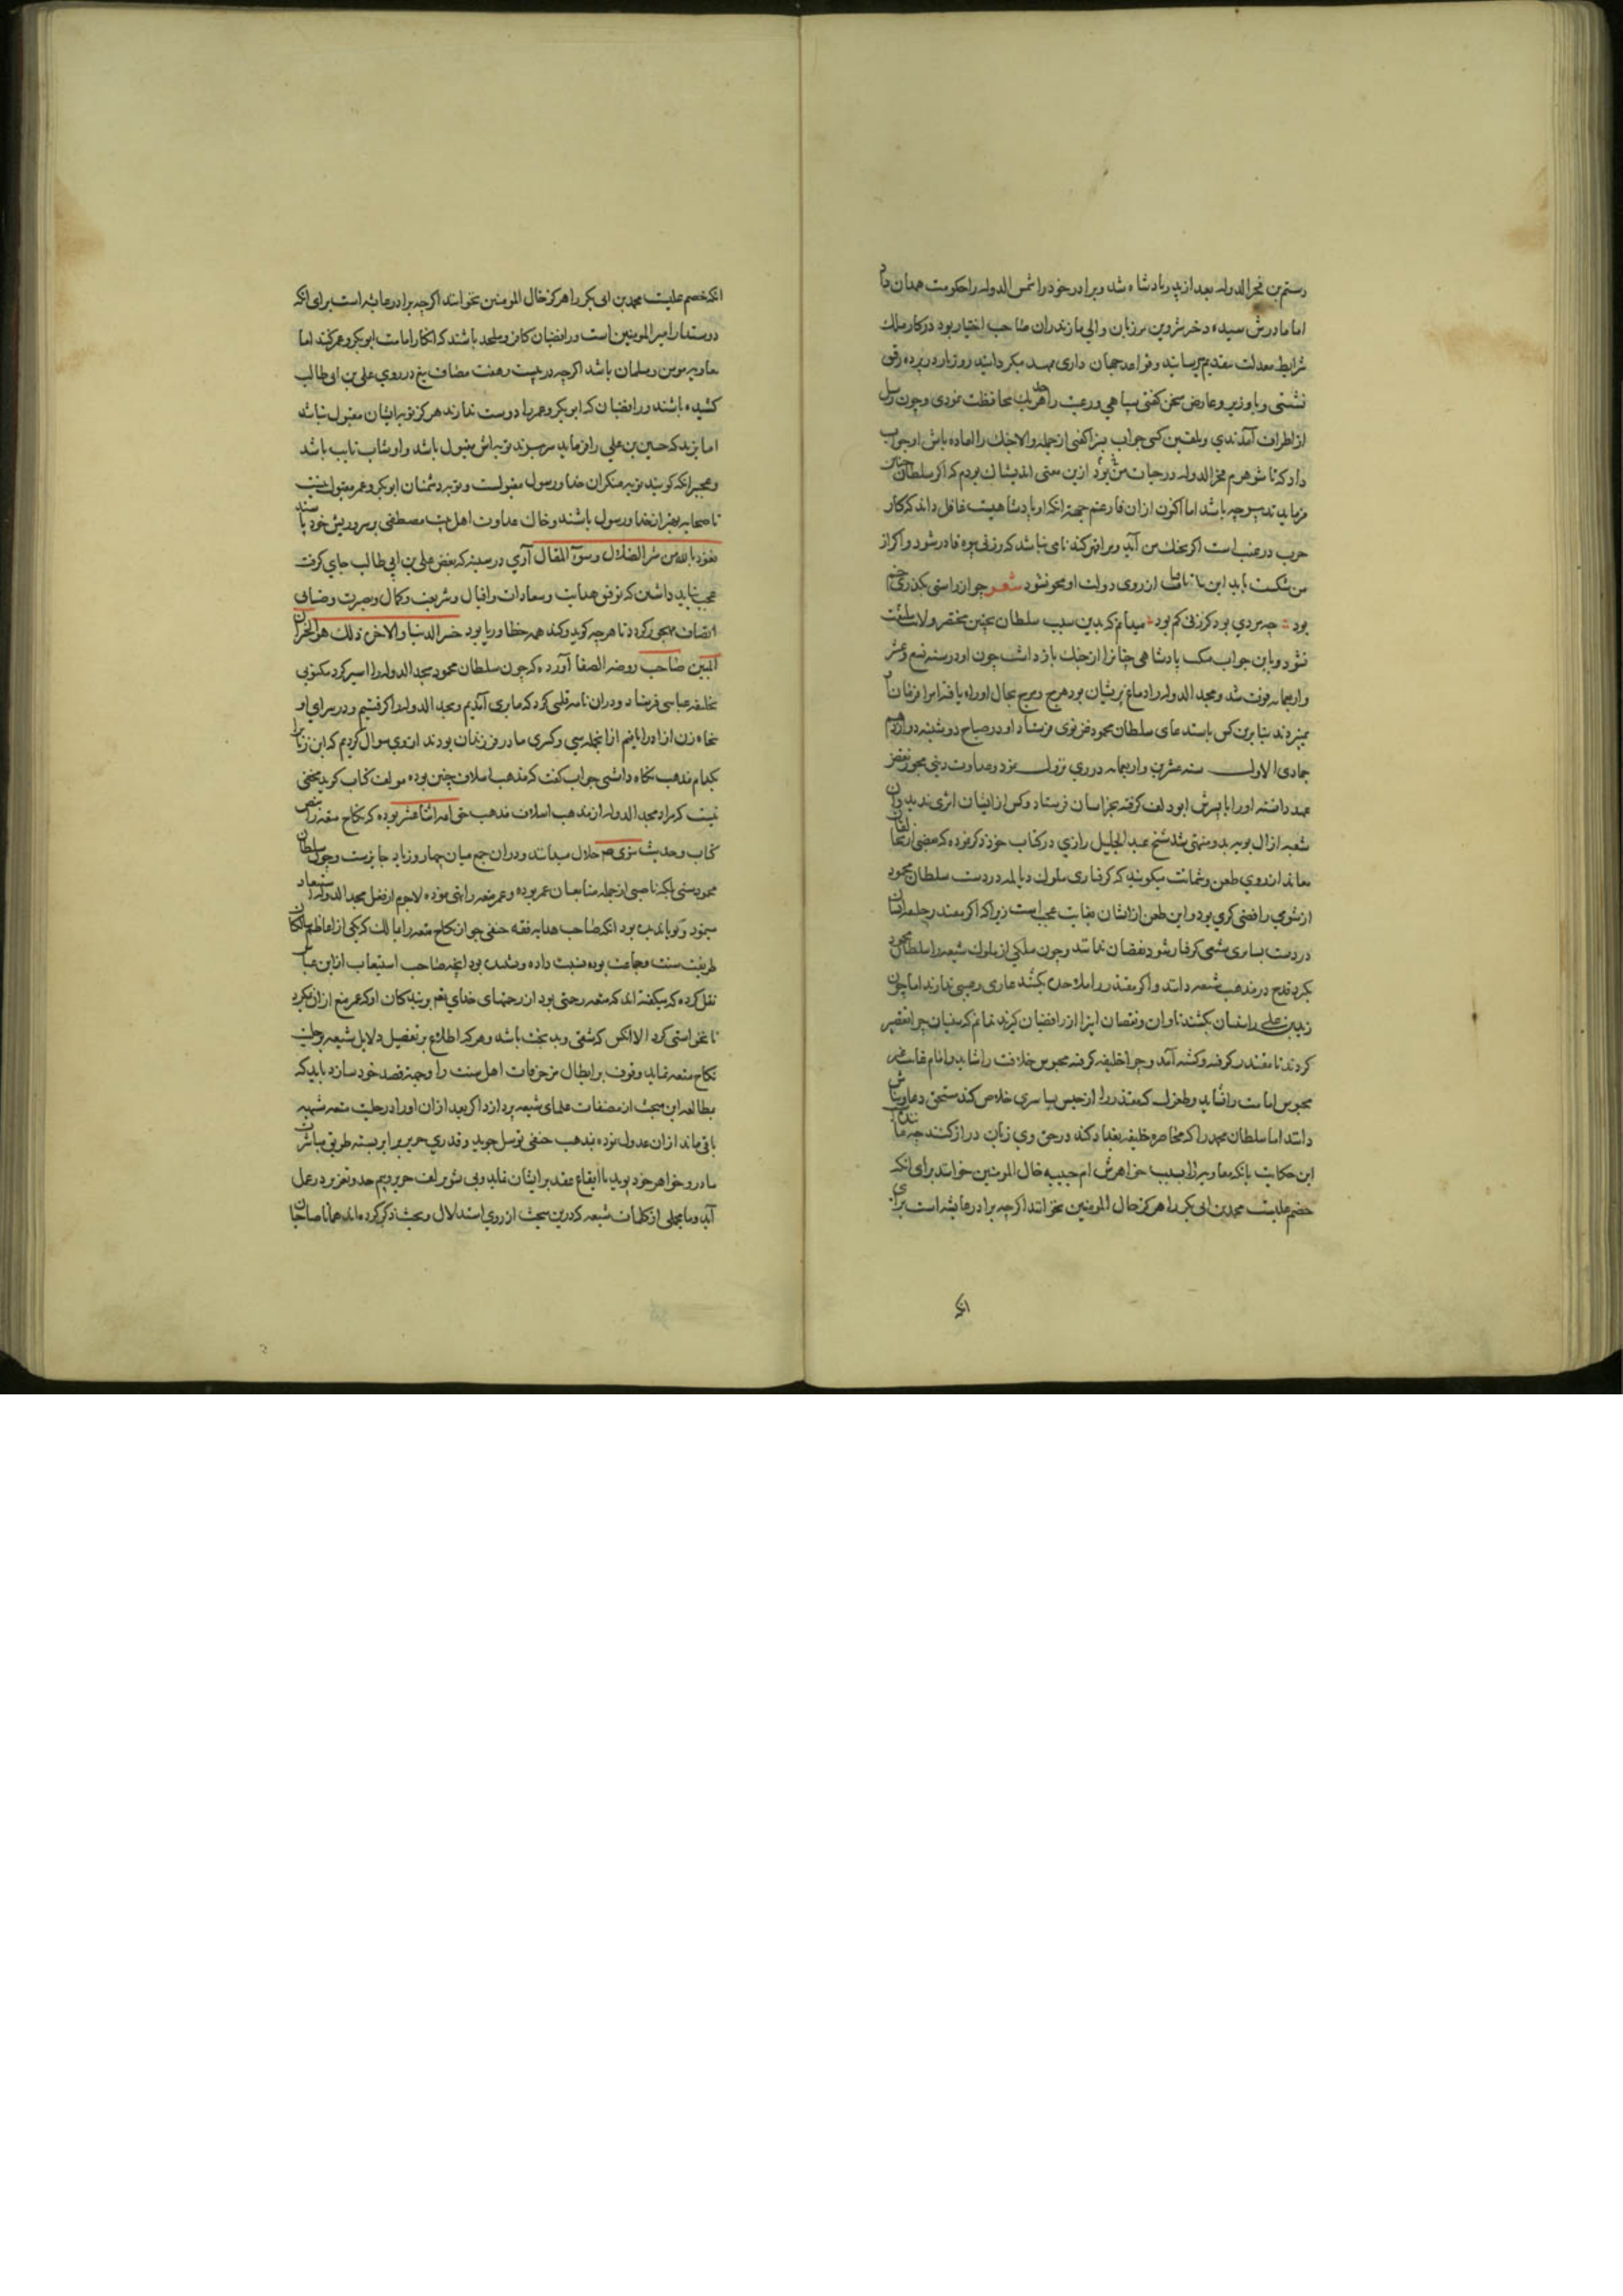 رستم بن فخرالدوله بعد از پدر پادشاه شد و برادر خود را شمس الدوله را حکومت همدان داد
اما مادرش سیده دختر شروین مرزبان والی مازندران صاحب اختیار بود در کار ملک
شرایط معدلت بتقدیم میرسانید و قواعد جهان داری ممهد میگردانید و روز بار در پرده رقیق
نشستی و با وزیر و عارض سخن گفتی سپاهی و رعیت را هریک محافظت نمودی و چون رسل
از اطراف آمدندی و بتلقین کسی جواب بسزا گفتی از جمله والاجنگ را اماده باش او جواب
داد که تا شوهرم فخرالدوله در حیات بود ازین معنی اندیشناک بودم که اگر سلطان چنان
فرماید تدبیر چه باشد اما اکنون از ان فارغم جهة انکه او پادشاهیست عاقل داند که کار
حرب در غیب است اگر بجنگ من آید و برا قهر کند نامی نباشد که بر زنی بیوه قادر شود و اگر از
من شکست یابد این از روی دولت او محو نشود شعر چو از راستی بگذری خم
بود چه مردی بود کز زنی کم بود میدانم که بدین سبب سلطان بچنین مختصر ولایت ملتفت
نشود و باین جواب پادشاهی چنان را از جنگ باز داشت چون او در سنه تسع و عشر
و اربعمایه فوت شد و مجد الدوله را دماغ پریشان بود هرج و مرج بحال او راه یافت امرا فرمان
نمیبردند بنابرین کس باستدعای سلطان محمود غزنوی فرستاد و او در صباح دوشنبه دوازدهم
جمادی الاول سنه عشرین و اربعمایه در ری نزول نمود و عداوت دینی مجوز نقض
عهد داشته او را با پسرش ابودلف گرفته بخراسان فرستاد و کس از ایشان اثری ندید و ان
شعبه از آل بویه بدو منتهی شد شیخ عبد الجلیل رازی در کتاب خود ذکر نموده که بعضی از مخالفان
معاند از روی طعن و شماتت میگویند که گرفتاری ملوک دیالمه در دست سلطان محمود
از شومی رافضی گری بود و این طعن از ایشان بغایت عجب است زیرا که اگر مقتدر خلیفه ایشان
در دست بساسیری شیعی گرفتار شود نقصان ندانند و چون ملکی از ملوک شیعه را سلطان محمود
بگیرد قدح در مذهب شیعه دانند و اگر مقتدر را ملاحده بکشند عاری و عیبی ندارند اما چون
زید بن علی را بکشند تاوان و نقصان انرا از رافضیان گیرند ندانم که سنیان چرا تقصیر
کردند تا مقتدر گرفته و کشته آمد و چرا خلیفه گرفته محبوس خلافت را شاید و امام غایب
محبوس امامت را نشاید و طغرل که مقتدر را از حبس بساسیری خلاص کند مستحق دعا و ثناش
دانند اما سلطان محمد را که محاصره خلیفه بغداد کند در حق وی زبان دراز کنند چه ماند
این حکایت بانکه معاویه را بسبب خواهرش ام حبیبه خال المومنین خوانند برای انکه
خصم علیست محمد بن ابی بکر را هرگز خال المومنین نخوانند اگرچه برادر عایشه است برای
انکه
انکه خصم علیست محمد بن ابی بکر را هرگز خال المومنین نخوانند اگرچه برادر عایشه است برای انکه
دوستدار امیر المومنین است و رافضیان کافر و ملحد باشند که انکار امامت ابوبکر و عمر کنند اما
معاویه مومن و مسلمان باشد اگرچه در بیست و هفت مصاف تیغ در روی علی بن ابی طالب
کشیده باشند و رافضیان که ابوبکر و عمر را دوست ندارند هرگز توبه ایشان مقبول نباشد
اما یزید که حسین بن علی را فرماید سر ببرند توبه اش مقبول باشد و او شاب تایب باشد
و عجبتر انکه گویند توبه منکران خدا و رسول مقبولست و توبه دشمنان ابوبکر و عمر مقبول نیست
تا صحابه بهتر از خدا و رسول باشند و خاک عداوت اهل بیت مصطفی بر سر و ریش خود پاشند
نعوذ بالله من شر الضلال و سوء المقال آری در سینه که بغض علی بن ابی طالب جای گرفت
عجب نباید داشتن که توفیق هدایت و سعادات و اقبال و شریعت و کمال و بصیرت و ضیا از
انصاف مهجور گردد تا هرچه گوید و کند همه خطا و ریا بود خسر الدنیا والاخره ذلک هو الخسران
المبین صاحب روضه الصفا آورده که چون سلطان محمود مجد الدوله را اسیر کرد مکتوبی
بخلیفه عباسی فرستاد و دران نامه قلمی کرد که ما بری آمدیم و مجد الدوله را گرفتیم و در سرای او
پنجاه زن ازاد را یافتیم از انجمله سی و کسری مادر فرزندان بودند از وی سوال کردیم که این زنانرا
بکدام مذهب نگاه داشتی جواب گفت که مذهب اسلاف چنین بوده مولف کتاب گوید مخفی
نیست که مراد مجد الدوله از مذهب اسلاف مذهب حق امه اثنا عشر بوده که نکاح متعه را بنص
کتاب و حدیث نبوی صم حلال میدانند و دران جمع میان چهار و زیاد جایزست و چون سلطان
محمود سنی بلکه ناصبی از جمله متابعان عمر بوده و عمر متعه را نهی نموده لاجرم از فعل مجد الدوله استبعاد
مینمود و گویا ندیده بود انکه صاحب هدایه فقه حنفی جواز نکاح متعه را بمالک که یکی از اعاظم سالکان
طریقت سنت و جماعت بوده نسبت داده و نشنیده بود انچه صاحب استیعاب از ابن عباس
نقل کرده که میگفته اند که متعه رحمتی بود از رحمتهای خدای تعم بر بندکان او که عمر منع ازان نکرد
تا نخواستی کرد الا انکس که شقی و بدبخت باشد و هرکه اطلاع بر تفصیل دلایل شیعه بر حلیت
نکاح متعه نماید و وقوف بر ابطال مزخرفات اهل سنت را وجهه قصد خود سازد باید که
بمطالعه این مبحث از مصنفات علمای شیعه پردازد اگر بعد ازان او را در حلیت متعه شبهه
باقی ماند ازان عدول نموده بمذهب حنفی توسل جوید و قدری حریر بر ابر بسته طریق مباشرت
مادر و خواهر خود پوید یا ایقاع عقد بر ایشان نماید و بی تشویش لف حریر و بیم حد و تعزیر در عمل
آید و ما مجملی از کلمات شیعه که درین مبحث از روی استدلال و بحث ذکر کرده اند همانا صاحبان